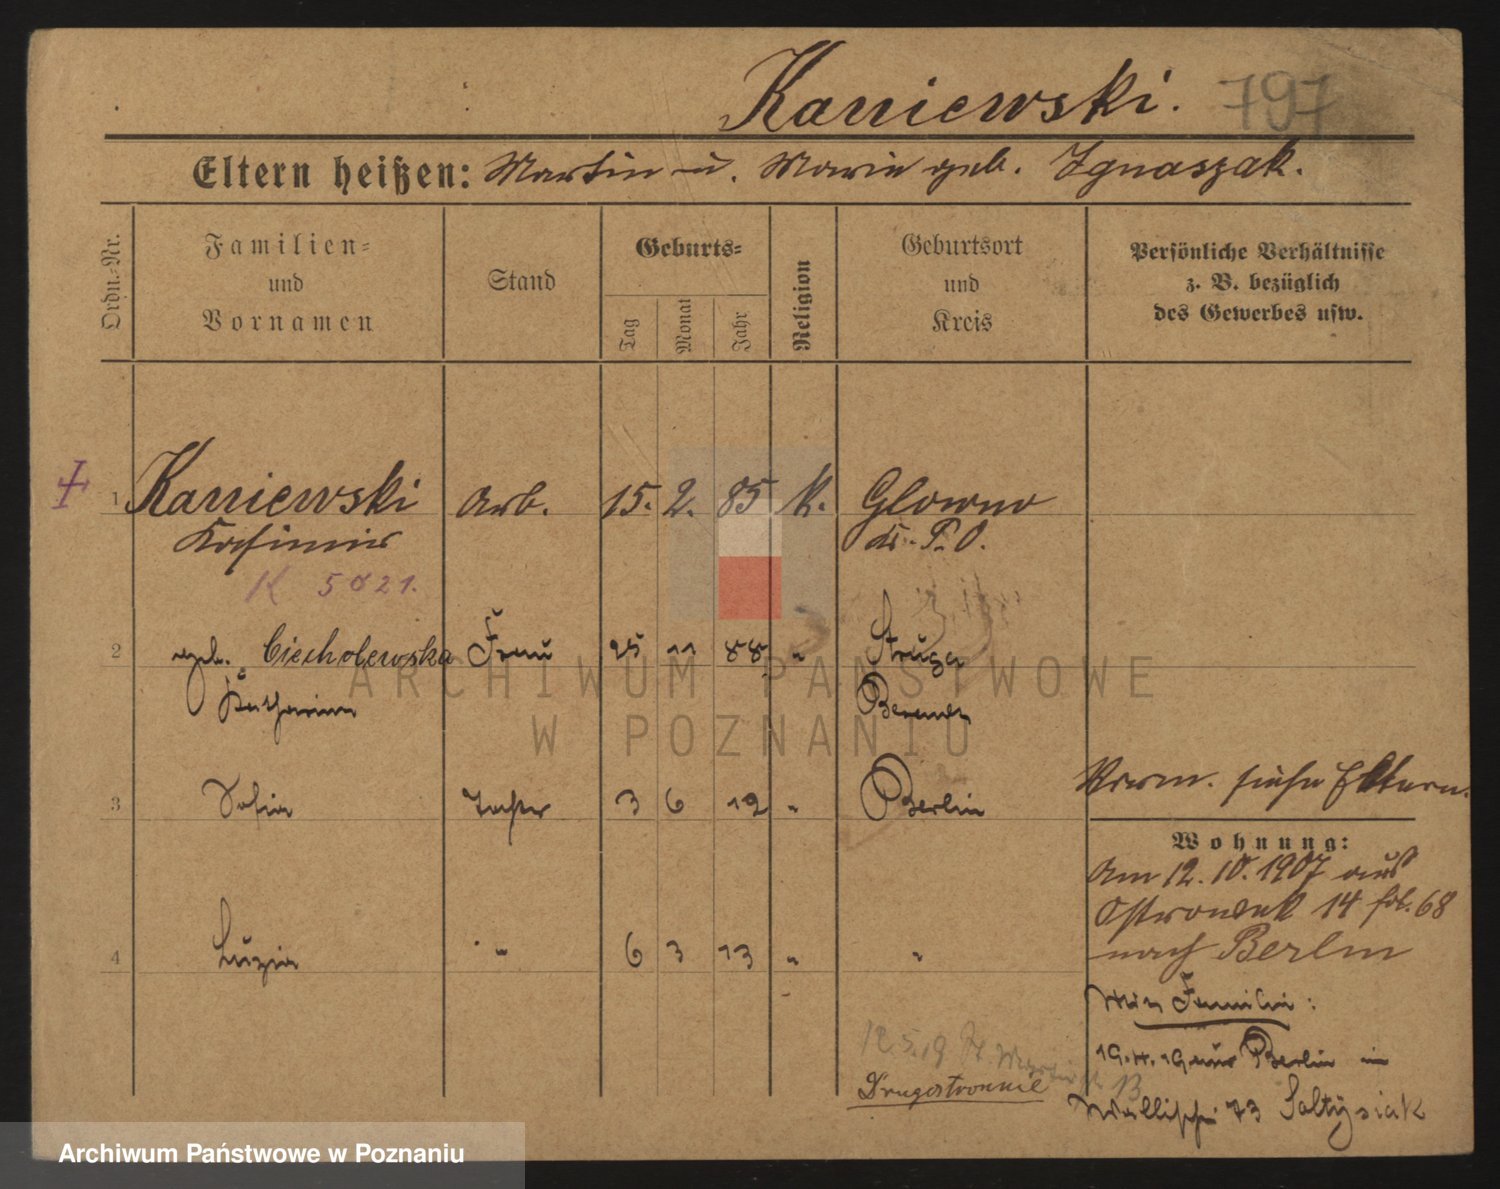 Kaniewski. 797
Eltern heißen: Martin u. Marie geb. Ignaszak.
Ordn.-Nr.
Familien-
und
Vornamen
Stand
Geburts-
Tag
Monat
Jahr
Religion
Geburtsort
und
Kreis
Persönliche Verhältnisse
z. B. bezüglich
des Gewerbes usw.
1 Kaniewski Arb. 15. 2. 85 K. Glowno
Kasimir Kr. P. O.
K 5021.
2 geb. Ciecholewska Frau 25 11 88 " Struga
Katharina Berent
3 Sofia Tochter 3 6 12 " Berlin
4 Luzia " 6 3 13 " "
Verm. siehe Eltern.
Wohnung:
Am 12. 10. 1907 aus
Ostrowek 14 fol. 68
nach Berlin
Familie:
19.4.19 aus Berlin in
Wallischei 73 Soltysiak
12.5.19 St. Martinstr. 13
Drugostronnie
ARCHIWUM PAŃSTWOWE
W POZNANIU
Archiwum Państwowe w Poznaniu